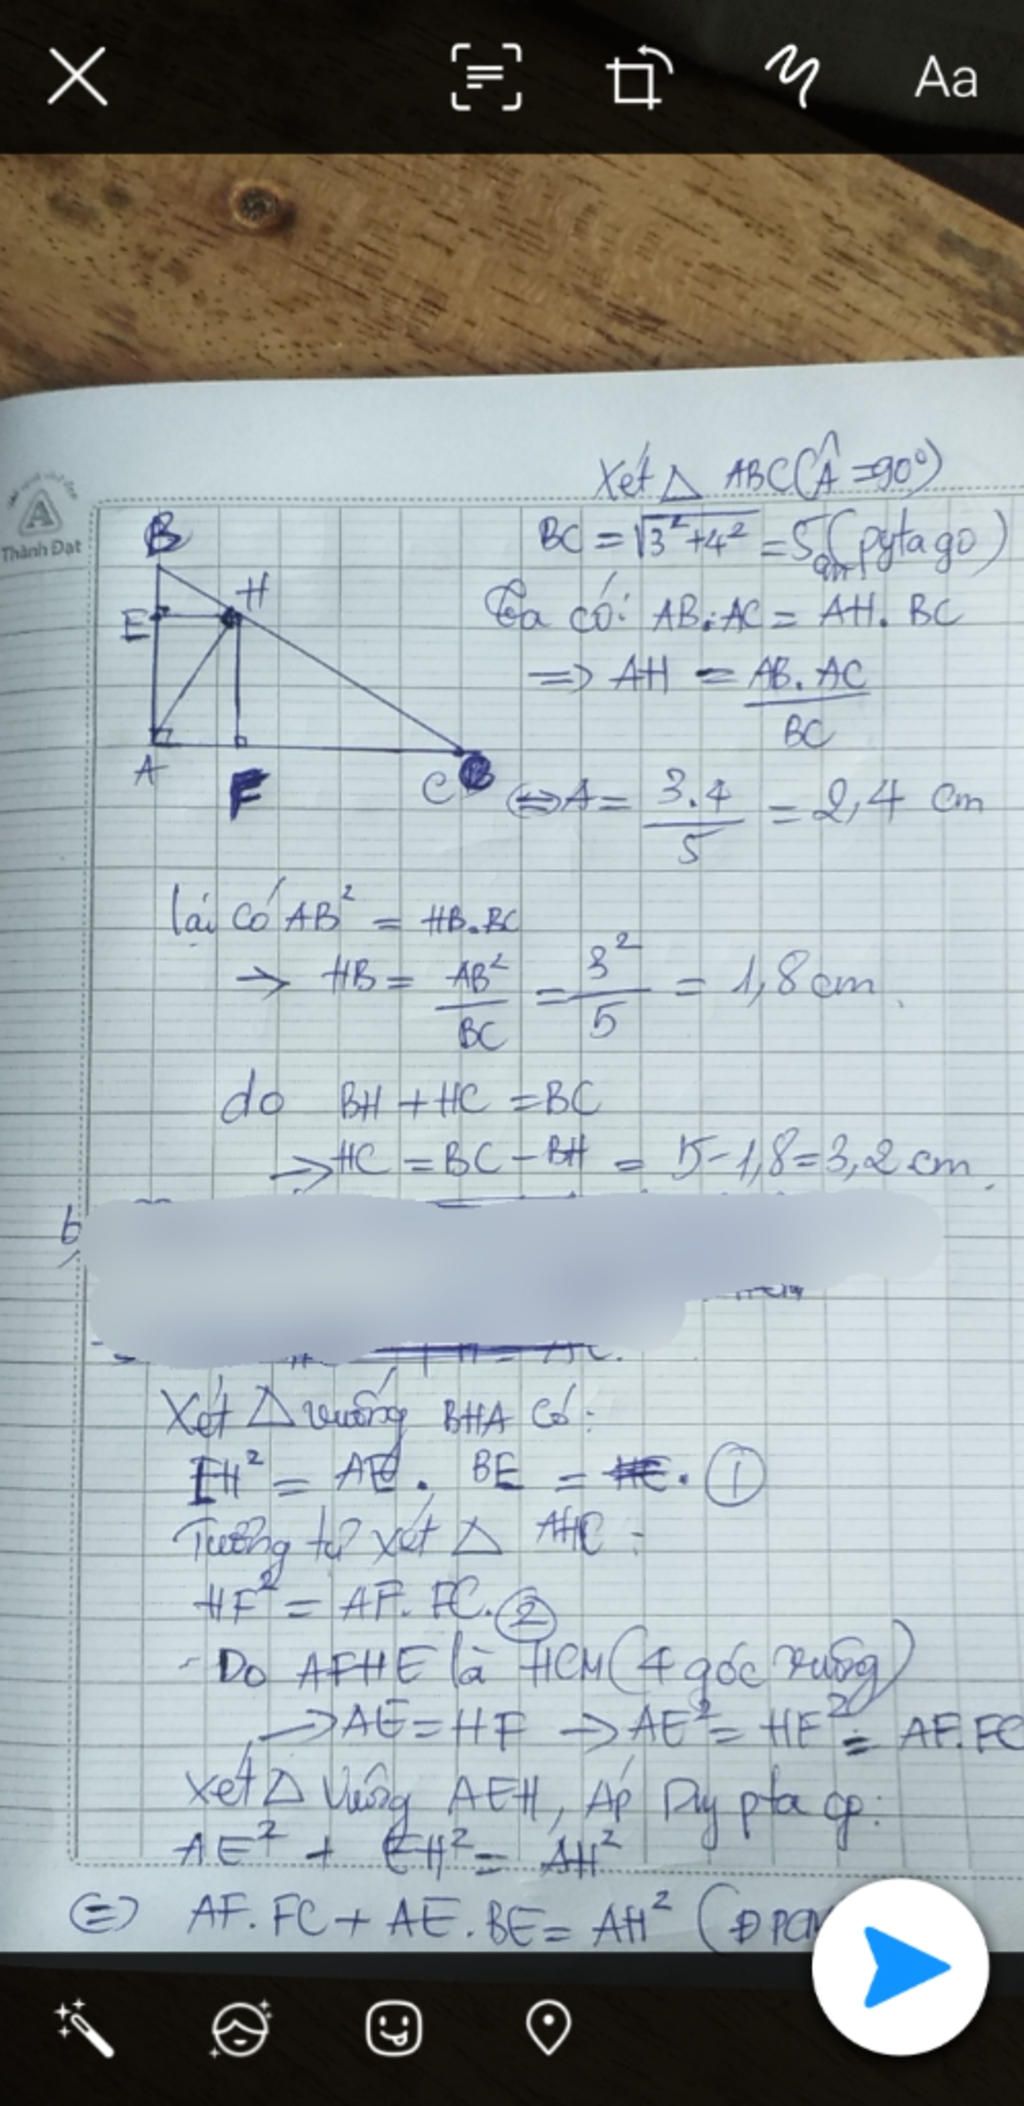 Aa
Thành Đạt
Xét △ ABC (Â = 90°)
BC = √3²+4² = 5 (pytago)
cm
B
H
E
A
F
C
Ta có: AB.AC = AH.BC
=> AH = AB.AC / BC
<=> A = 3.4 / 5 = 2,4 cm
lại có AB² = HB.BC
→ HB = AB² / BC = 3² / 5 = 1,8 cm
do BH + HC = BC
→ HC = BC - BH = 5 - 1,8 = 3,2 cm
b,
Xét △ vuông BHA có:
EH² = AE . BE = HE. ①
Tương tự xét △ AHC:
HF² = AF. FC. ②
- Do AFHE là HCN (4 góc vuông)
→ AE = HF → AE² = HF² = AF.FC
Xét △ vuông AEH, Áp Dụng pta go:
AE² + EH² = AH²
<=> AF.FC + AE.BE = AH² (ĐPCM